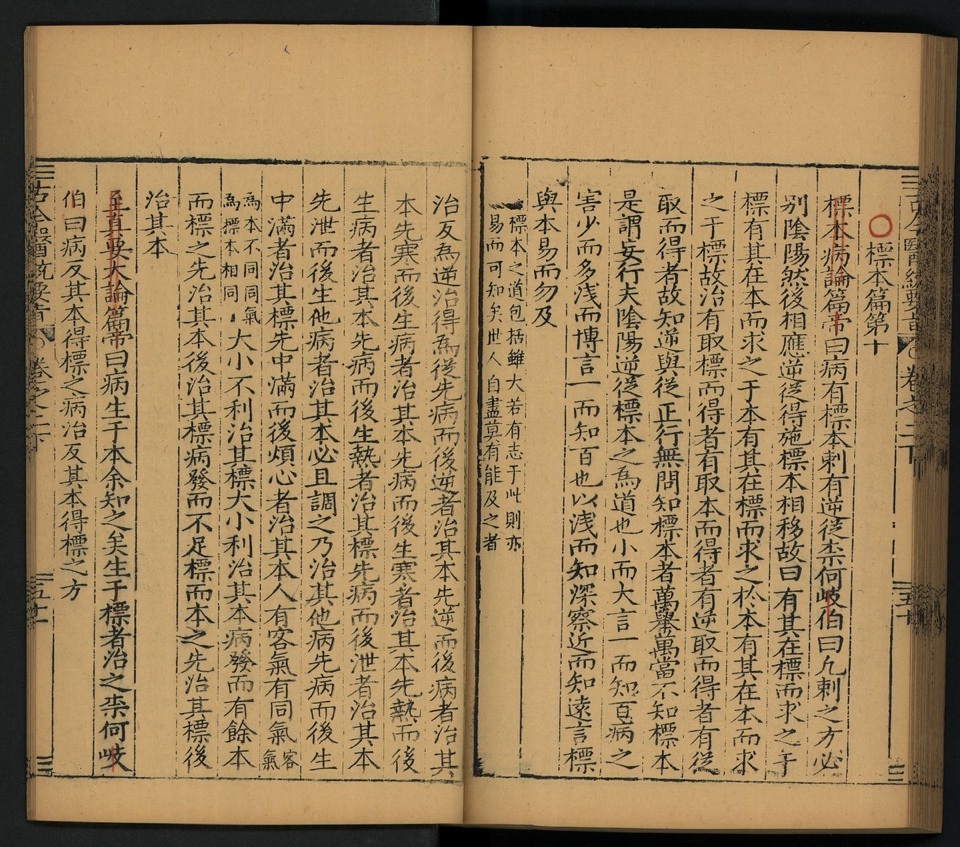 標本篇第十
標本病論篇帝曰病有標本刺有逆從柰何岐伯曰凡刺之方必
別陰陽然後相應逆從得施標本相移故曰有其在標而求之于
標有其在本而求之于本有其在標而求之於本有其在本而求
之于標故治有取標而得者有取本而得者有逆取而得者有從
取而得者故知逆與從正行無問知標本者萬舉萬當不知標本
是謂妄行夫陰陽逆從標本之爲道也小而大言一而知百病之
害少而多淺而博言一而知百也以淺而知深察近而知遠言標
與本易而勿及
標本之道包括雖大若有志于此則亦
易而可知矣世人自盡莫有能及之者
治反爲逆治得爲從先病而後逆者治其本先逆而後病者治其
本先寒而後生病者治其本先病而後生寒者治其本先熱而後
生病者治其本先病而後生熱者治其標先病而後泄者治其本
先泄而後生他病者治其本必且調之乃治其他病先病而後生
中滿者治其標先中滿而後煩心者治其本人有客氣有同氣客氣
爲本不同同氣爲標本相同大小不利治其標大小利治其本病發而有餘本
而標之先治其本後治其標病發而不足標而本之先治其標後
治其本
至眞要大論篇帝曰病生于本余知之矣生于標者治之柰何岐
伯曰病反其本得標之病治反其本得標之方
卷之二下
五十
卷之二下
五十一